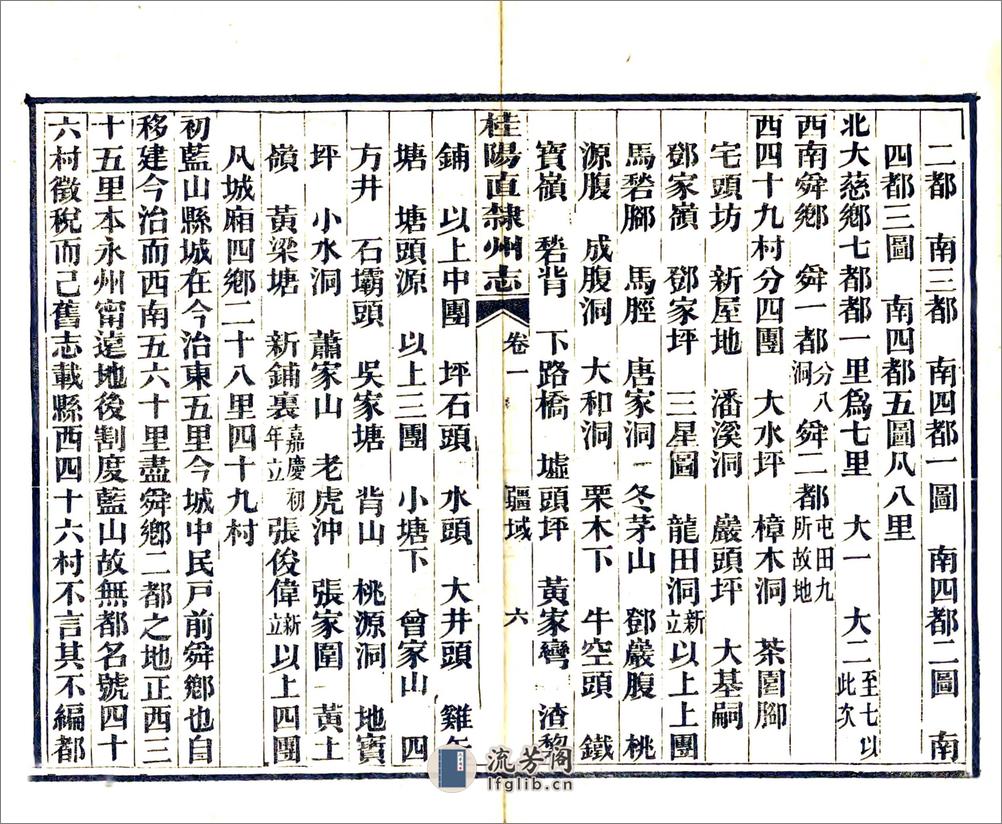 二都　南三都　南四都一圖　南四都二圖　南
四都三圖　南四都五圖凡八里
北大慈鄉七都都一里爲七里　大一　大二至七以此次
西南舜鄉　舜一都分八洞　舜二都屯田九所故地
西四十九村分四團　大水坪　樟木洞　茶園腳
宅頭坊　新屋地　潘溪洞　嚴頭坪　大基嗣
鄧家嶺　鄧家坪　三星圖　龍田洞新立以上上團
馬磜腳　馬脛　唐家洞　冬茅山　鄧嚴腹　桃
源腹　成腹洞　大和洞　栗木下　牛空頭　鐵
寶嶺　磜背　下路橋　墟頭坪　黃家彎　渣黎
桂陽直隸州志　卷一　疆域　六
鋪　以上中團　坪石頭　水頭　大井頭　雞
塘　塘頭源　以上三團　小塘下　曾家山　四
方井　石壩頭　吳家塘　背山　桃源洞　地寶
坪　小水洞　蕭家山　老虎沖　張家圍　黃土
嶺　黃梁塘　新鋪裏嘉慶初年立　張俊偉新立以上四團
凡城廂四鄉二十八里四十九村
初藍山縣城在今治東五里今城中民戶前舜鄉也自
移建今治而西南五六十里盡舜鄉二都之地正西三
十五里本永州甯遠地後割度藍山故無都名號四十
六村徵稅而已舊志載縣西四十六村不言其不編都
流芳閣
lfglib.cn